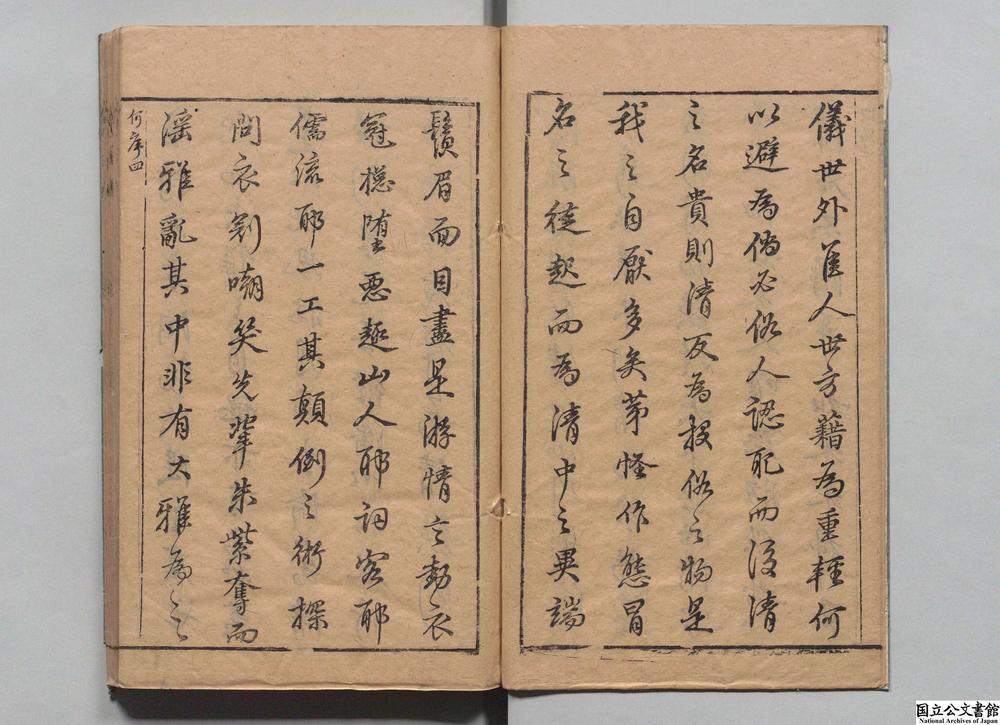 儀世外佳人世方藉為重輕何
以避為偽必俗人認配而後清
之名貴則清反為投俗之物是
我之自厭多矣第怪作態冒
名之徒起而為清中之異端
鬚眉而目盡是游情言動衣
冠極墮惡趣山人耶詞客耶
儒流耶一工其顛倒之術探
問衣剝嘲笑先輩朱紫奪而
淫雅亂其中非有大雅為之
何序四
国立公文書館
National Archives of Japan